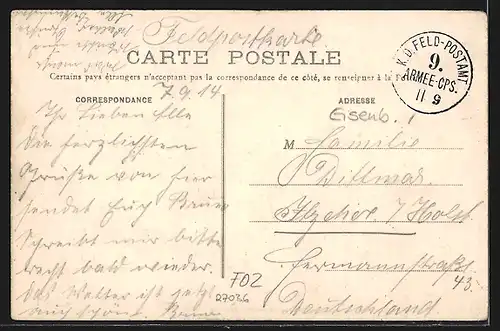 Feldpostkarte
CARTE POSTALE
Certains pays étrangers n'acceptant pas la correspondance de ce côté, se renseigner à la
K.D. FELD-POSTAMT
9.
ARMEE-CPS.
11 9
CORRESPONDANCE
7.9.14
ADRESSE
Ihr Lieben Alle
Die herzlichsten
Grüße von hier
sendet Euch
Schreibt mir bitte
recht bald wieder.
Das Walter ist jetzt
auch schon
M Familie
Dittmar
Itzehoe / Holst.
Hermannstraße
43.
Deutschland
FOZ
27026